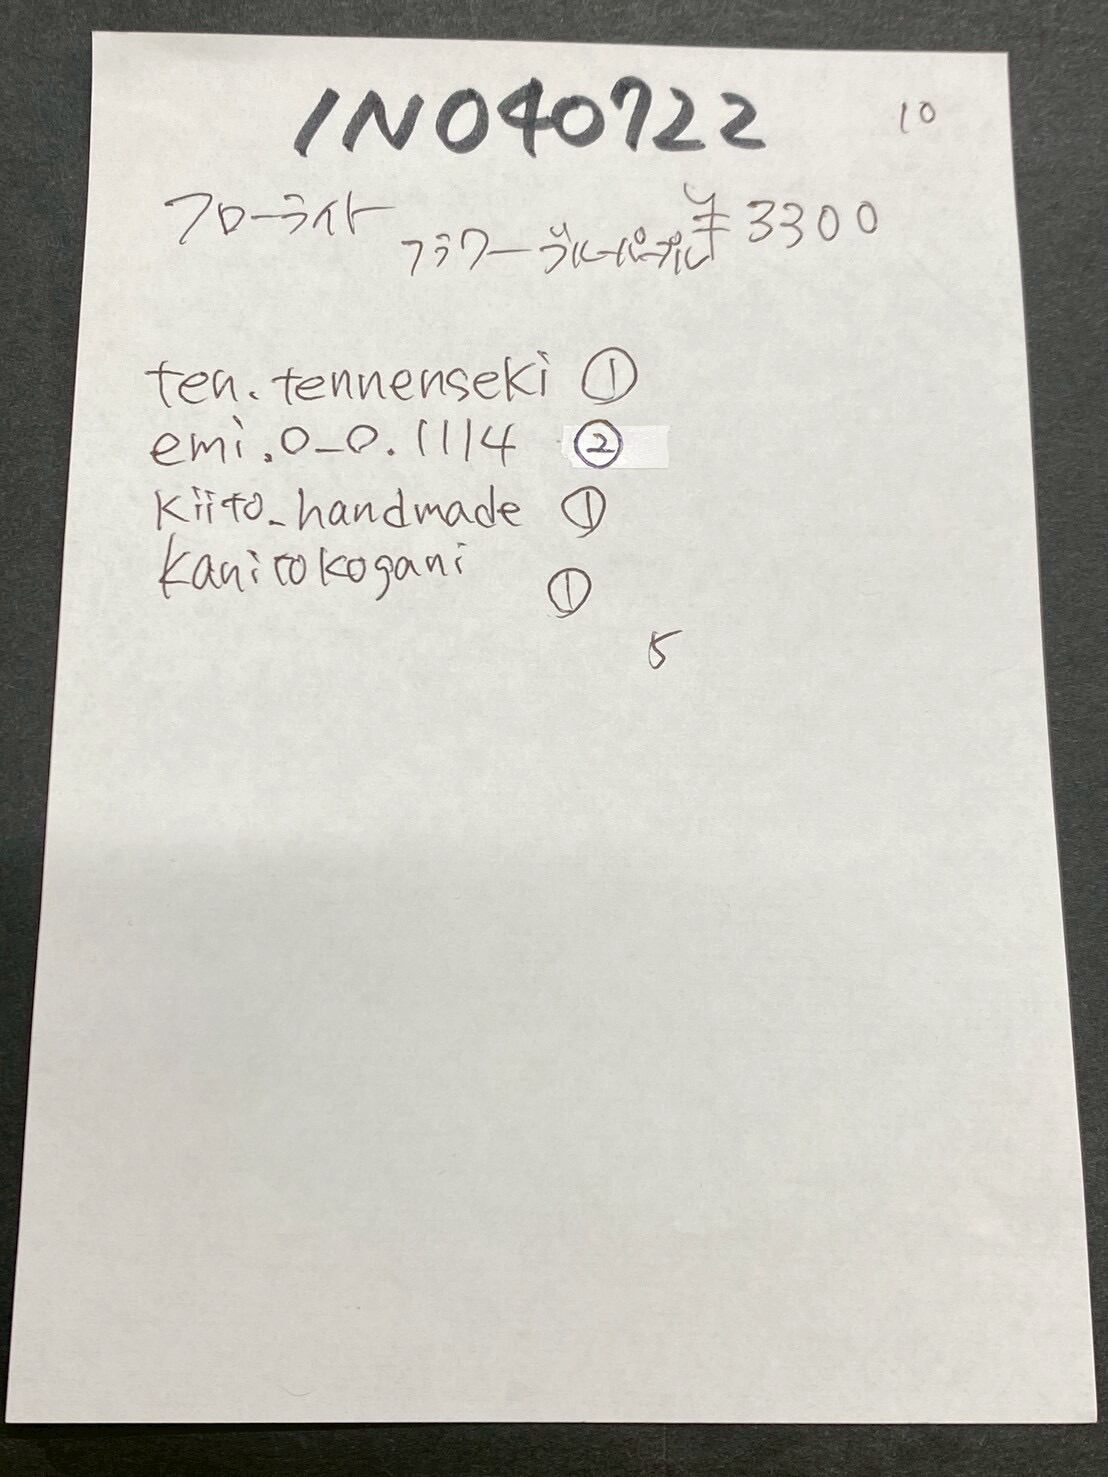 INO40722 10
フローライト
フラワーブルーパープル ¥3300
ten.tennenseki ①
emi.0_0.1114 ②
kiito_handmade ①
kanitokogani ①
5